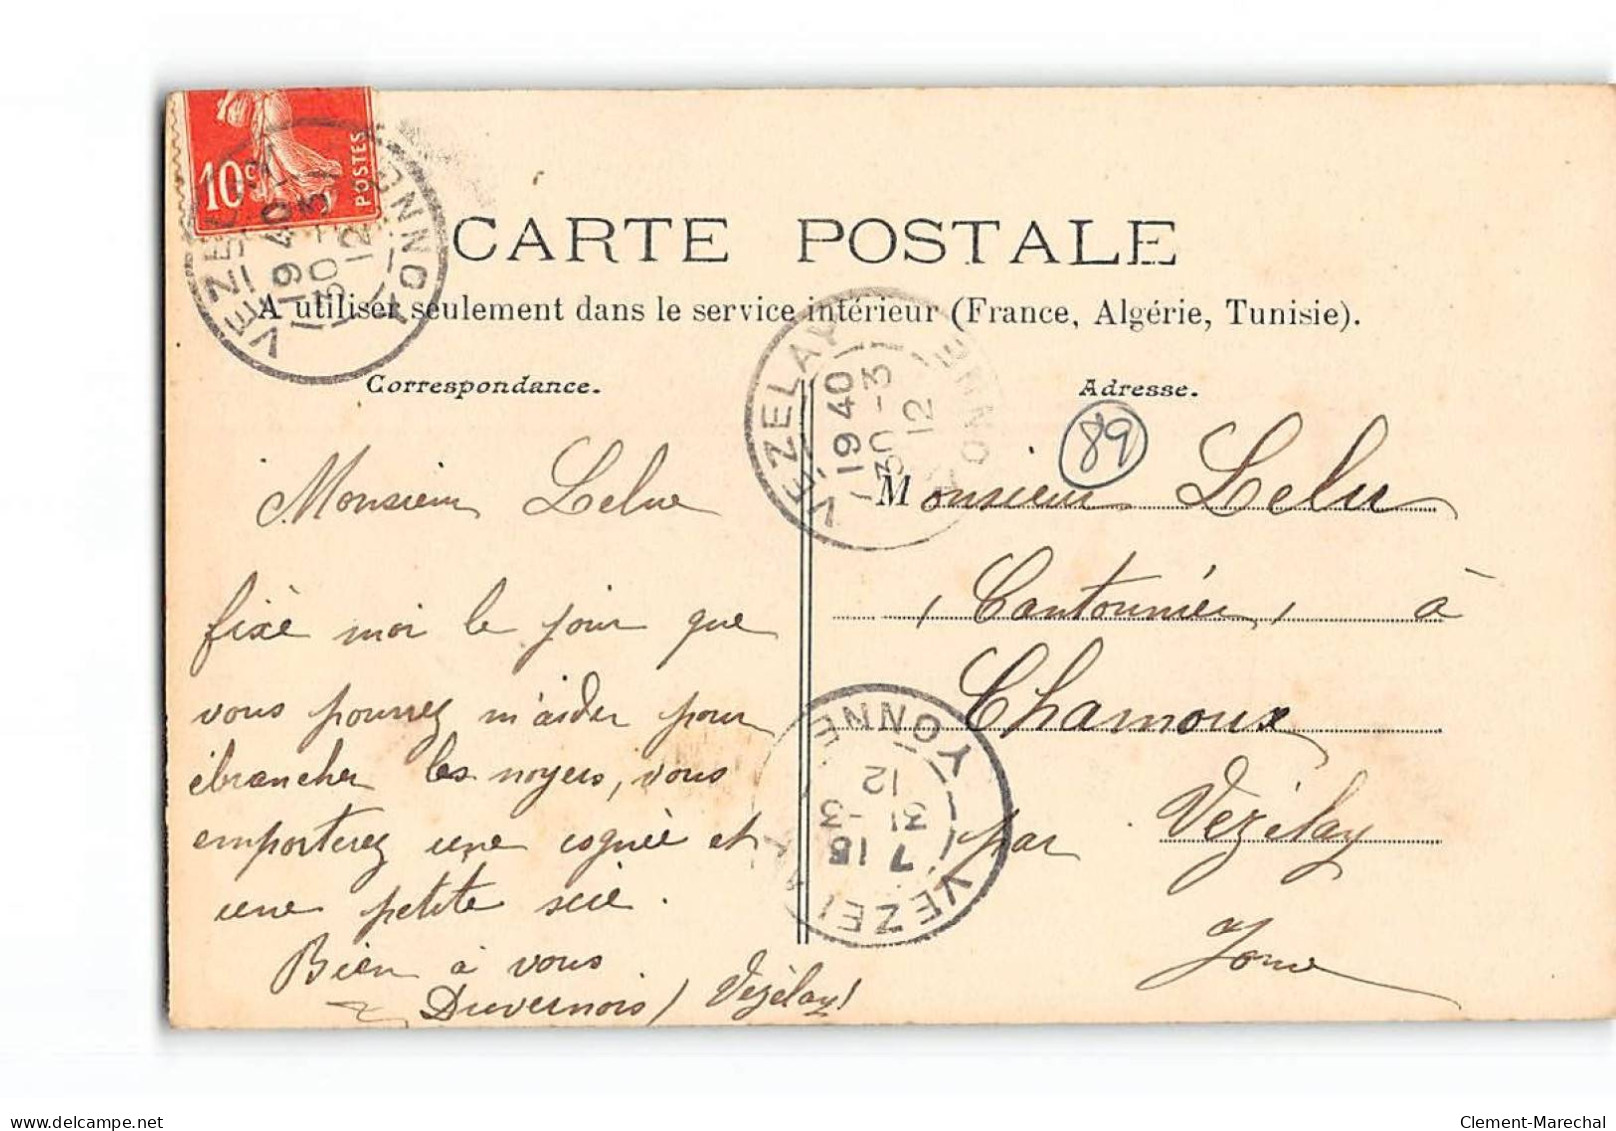 10c
POSTES
VEZELAY
19 40
30 -3
12
YONNE
CARTE POSTALE
A utiliser seulement dans le service intérieur (France, Algérie, Tunisie).
Correspondance.
Monsieur Lelue
fixé moi le jour que
vous pourrez m'aider pour
ébrancher les noyers, vous
emporterez une cognée et
une petite scie.
Bien à vous
Duvernois / Vézélay!
VÉZELAY
19 40
30 -3
12
YONNE
Adresse.
89
Monsieur Lelu
, Cantonnier, à
Chamoux
par Vezélay
Yonne
YONNE
12
31 -3
7 15
VEZELAY
delcampe.net
Clement-Marechal